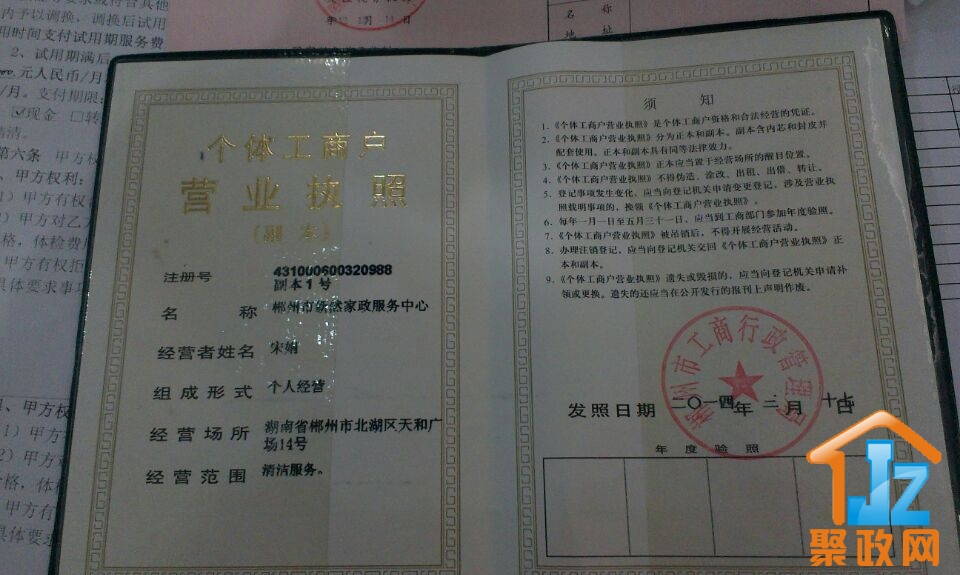 内予以调换，调换后试用
用时间支付试用期服务费
2、试用期满后
元人民币/月
/月。支付期限：
☑现金 □转
结清。
第六条 甲方权
、甲方权利：
1）甲方有权
2）甲方对乙
格，体检费
甲方有权拒
具体要求事项
名 称
地 址
个体工商户
营业执照
（副本）
注册号 431000600320988
副本1号
名 称 郴州市欣然家政服务中心
经营者姓名 宋娟
组成形式 个人经营
经营场所 湖南省郴州市北湖区天和广
场14号
经营范围 清洁服务。
须 知
1.《个体工商户营业执照》是个体工商户资格和合法经营的凭证。
2.《个体工商户营业执照》分为正本和副本。副本含内芯和封皮并
配套使用。正本和副本具有同等法律效力。
3.《个体工商户营业执照》正本应当置于经营场所的醒目位置。
4.《个体工商户营业执照》不得伪造、涂改、出租、出借、转让。
5. 登记事项发生变化，应当向登记机关申请变更登记，涉及营业执
照载明事项的，换领《个体工商户营业执照》。
6. 每年一月一日至五月三十一日，应当到工商部门参加年度验照。
7.《个体工商户营业执照》被吊销后，不得开展经营活动。
8. 办理注销登记，应当向登记机关交回《个体工商户营业执照》正
本和副本。
9.《个体工商户营业执照》遗失或毁损的，应当向登记机关申请补
领或更换。遗失的还应当在公开发行的报刊上声明作废。
郴州市工商行政管理局
发照日期 二〇一四年 二月 十七日
年度验照
JZ
聚政网